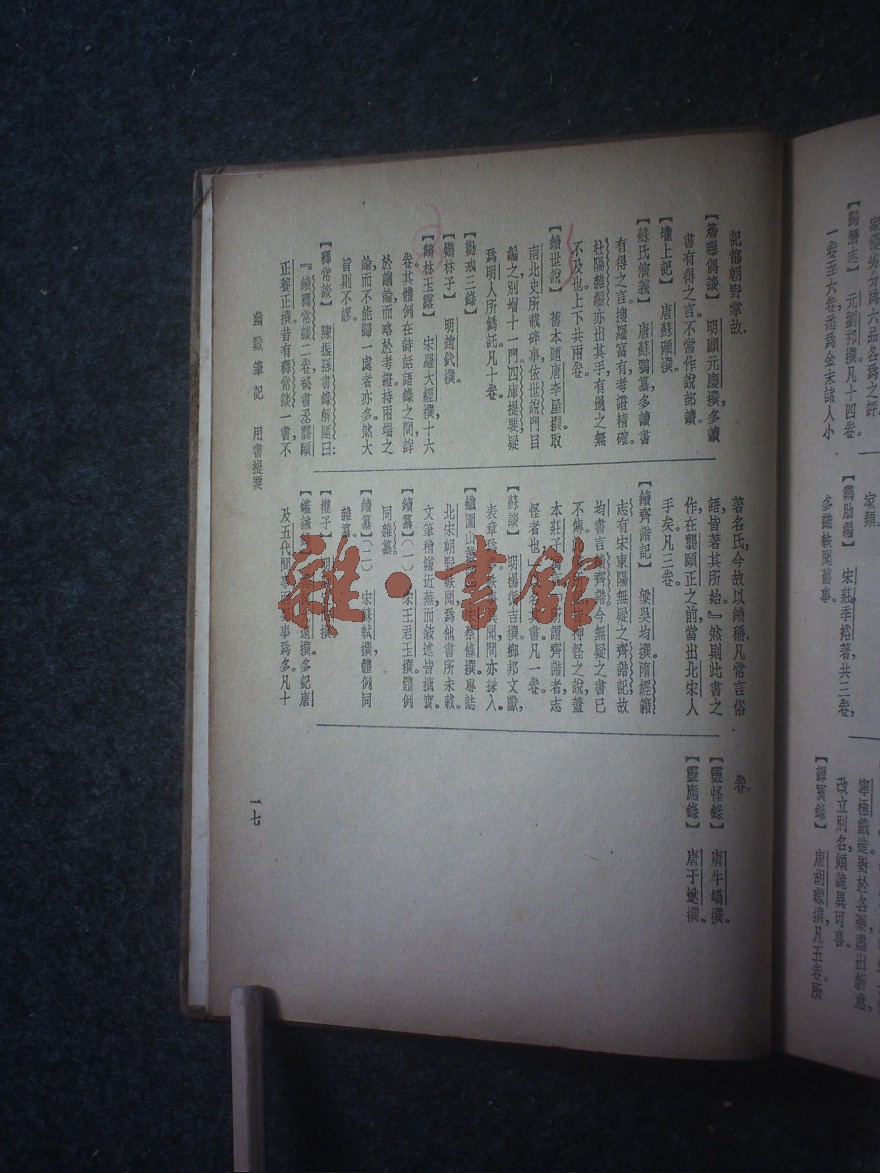 一卷至六卷,悉爲金末諸人小
【歸潛志】 元劉祁撰,凡十四卷。
家類。
【雞肋編】 宋莊季裕著,共三卷,
多識軼聞舊事。
改立別名,頗詭異可喜。
【譚賓錄】 唐胡璩撰,凡五卷,所
記都朝野掌故。
【簷曝偶談】 明顧元慶撰,多讀
書有得之言,不當作說部讀。
【壠上記】 唐蘇頲撰。
【蘇氏演義】 唐蘇鶚纂,多讀書
有得之言,搜羅富有,考證精確。
杜陽雜編亦出其手,有過之無
不及也。上下共兩卷。
【續世說】 舊本題唐李垕撰,取
南北史所載碎事,依世說門目
編之,別增十一門。四庫提要疑
爲明人所僞託,凡十卷。
【勸戒三錄】
【鶡林子】 明趙釴撰。
【鶴林玉露】 宋羅大經撰,十六
卷。其體例在詩話語錄之間,詳
於議論而略於考證。持兩端之
論而不能歸一處者亦多,然大
旨則不謬。
【釋常談】 陳振孫書錄解題曰:
『續釋常談二卷,祕書丞龔頤
正養正撰。昔有釋常談一書,不
著名氏,今故以續稱。凡常言俗
語,皆著其所始。』然則此書之
作,在龔頤正之前,當出北宋人
手矣。凡三卷。
【續齊諧記】 梁吳均撰。隋經籍
志有宋東陽無疑之齊諧記,故
均書言續齊諧。今無疑之書已
不傳。
本莊子 所謂齊諧者,志
怪者也』 書凡一卷。
【蘇談】 明楊循吉撰,鄉邦文獻,
表章 聞,間亦採入。
【鐵圍山叢談】 蔡絛撰,專誌
北宋朝野軼聞,爲他書所未載。
文筆稍嫌近蕪,而敘述皆摭實。
【續纂】(一) 宋王君玉撰,體例
同雜纂。
【續纂】(二) 宋蘇軾撰,體例同
雜纂。
【權子】
【鑑誡錄】 撰,多記唐
及五代間 事爲多,凡十
卷。
【靈怪錄】 唐牛嶠撰。
【靈應錄】 唐于逖撰。
幽默筆記 用書提要
一七
雜·書館